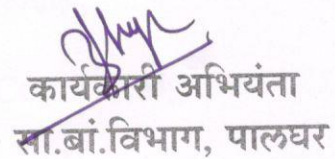 कार्यकारी अभियंता
सा.बां.विभाग, पालघर